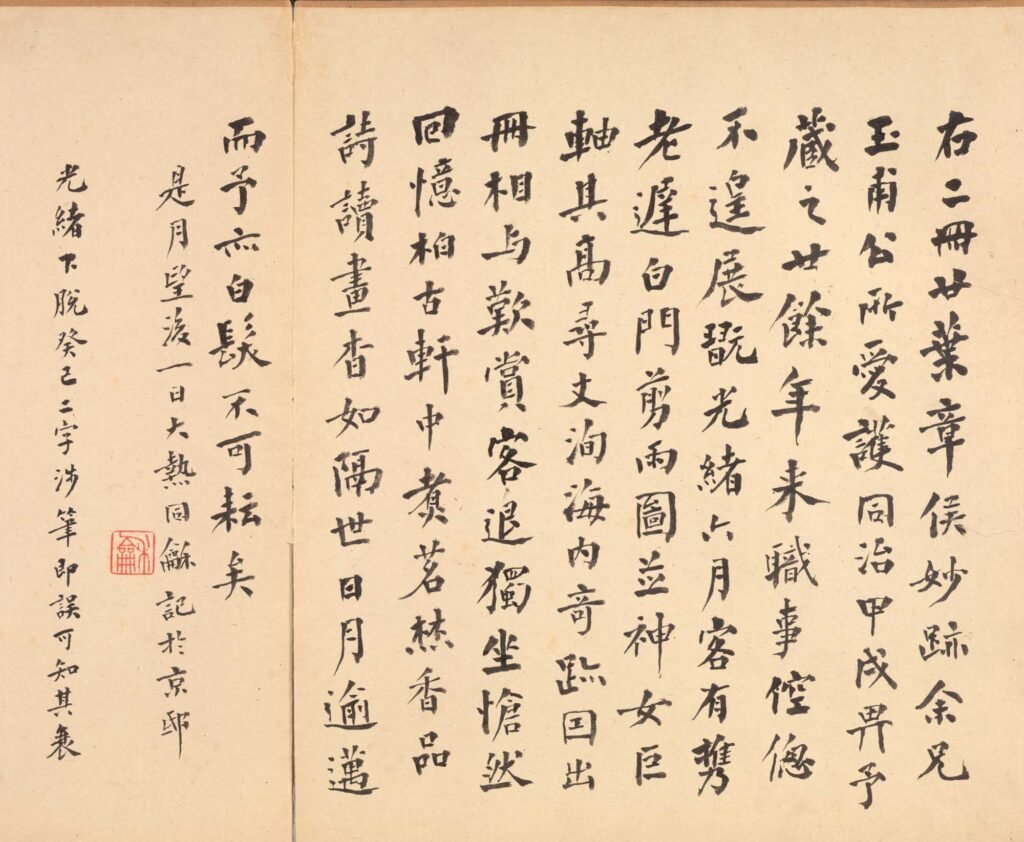 右二冊廿葉章侯妙跡余兄
玉甫公所愛護同治甲戌畀予
藏之廿餘年來職事倥傯
不遑展翫光緒六月客有攜
老遲白門剪雨圖並神女巨
軸其高尋丈洵海內奇跡因出
冊相与歎賞客退獨坐愴然
回憶柏古軒中煑茗焚香品
詩讀畫杳如隔世日月逾邁
而予亦白髮不可耘矣
是月望後一日大熱同龢記於京邸
光緒下脫癸巳二字涉筆即誤可知其衰